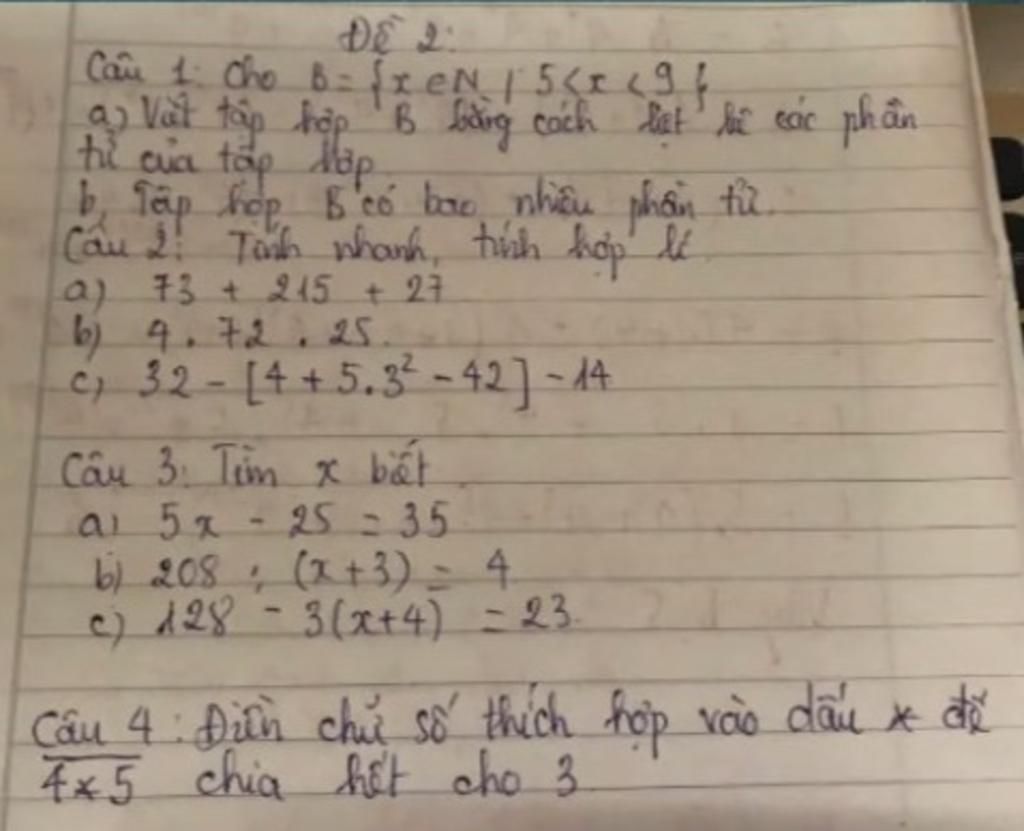 Đề 2:
Câu 1: Cho B = {x ∈ N | 5 < x < 9}
a) Viết tập hợp B bằng cách liệt kê các phần
tử của tập hợp
b, Tập hợp B có bao nhiêu phần tử.
Câu 2: Tính nhanh, tính hợp lí
a) 73 + 215 + 27
b) 4 . 72 . 25.
c, 32 - [4 + 5.3² - 42] - 14
Câu 3: Tìm x biết
a) 5x - 25 = 35
b) 208 : (x+3) = 4
c) 128 - 3(x+4) = 23.
Câu 4: Điền chữ số thích hợp vào dấu * để
4*5 chia hết cho 3